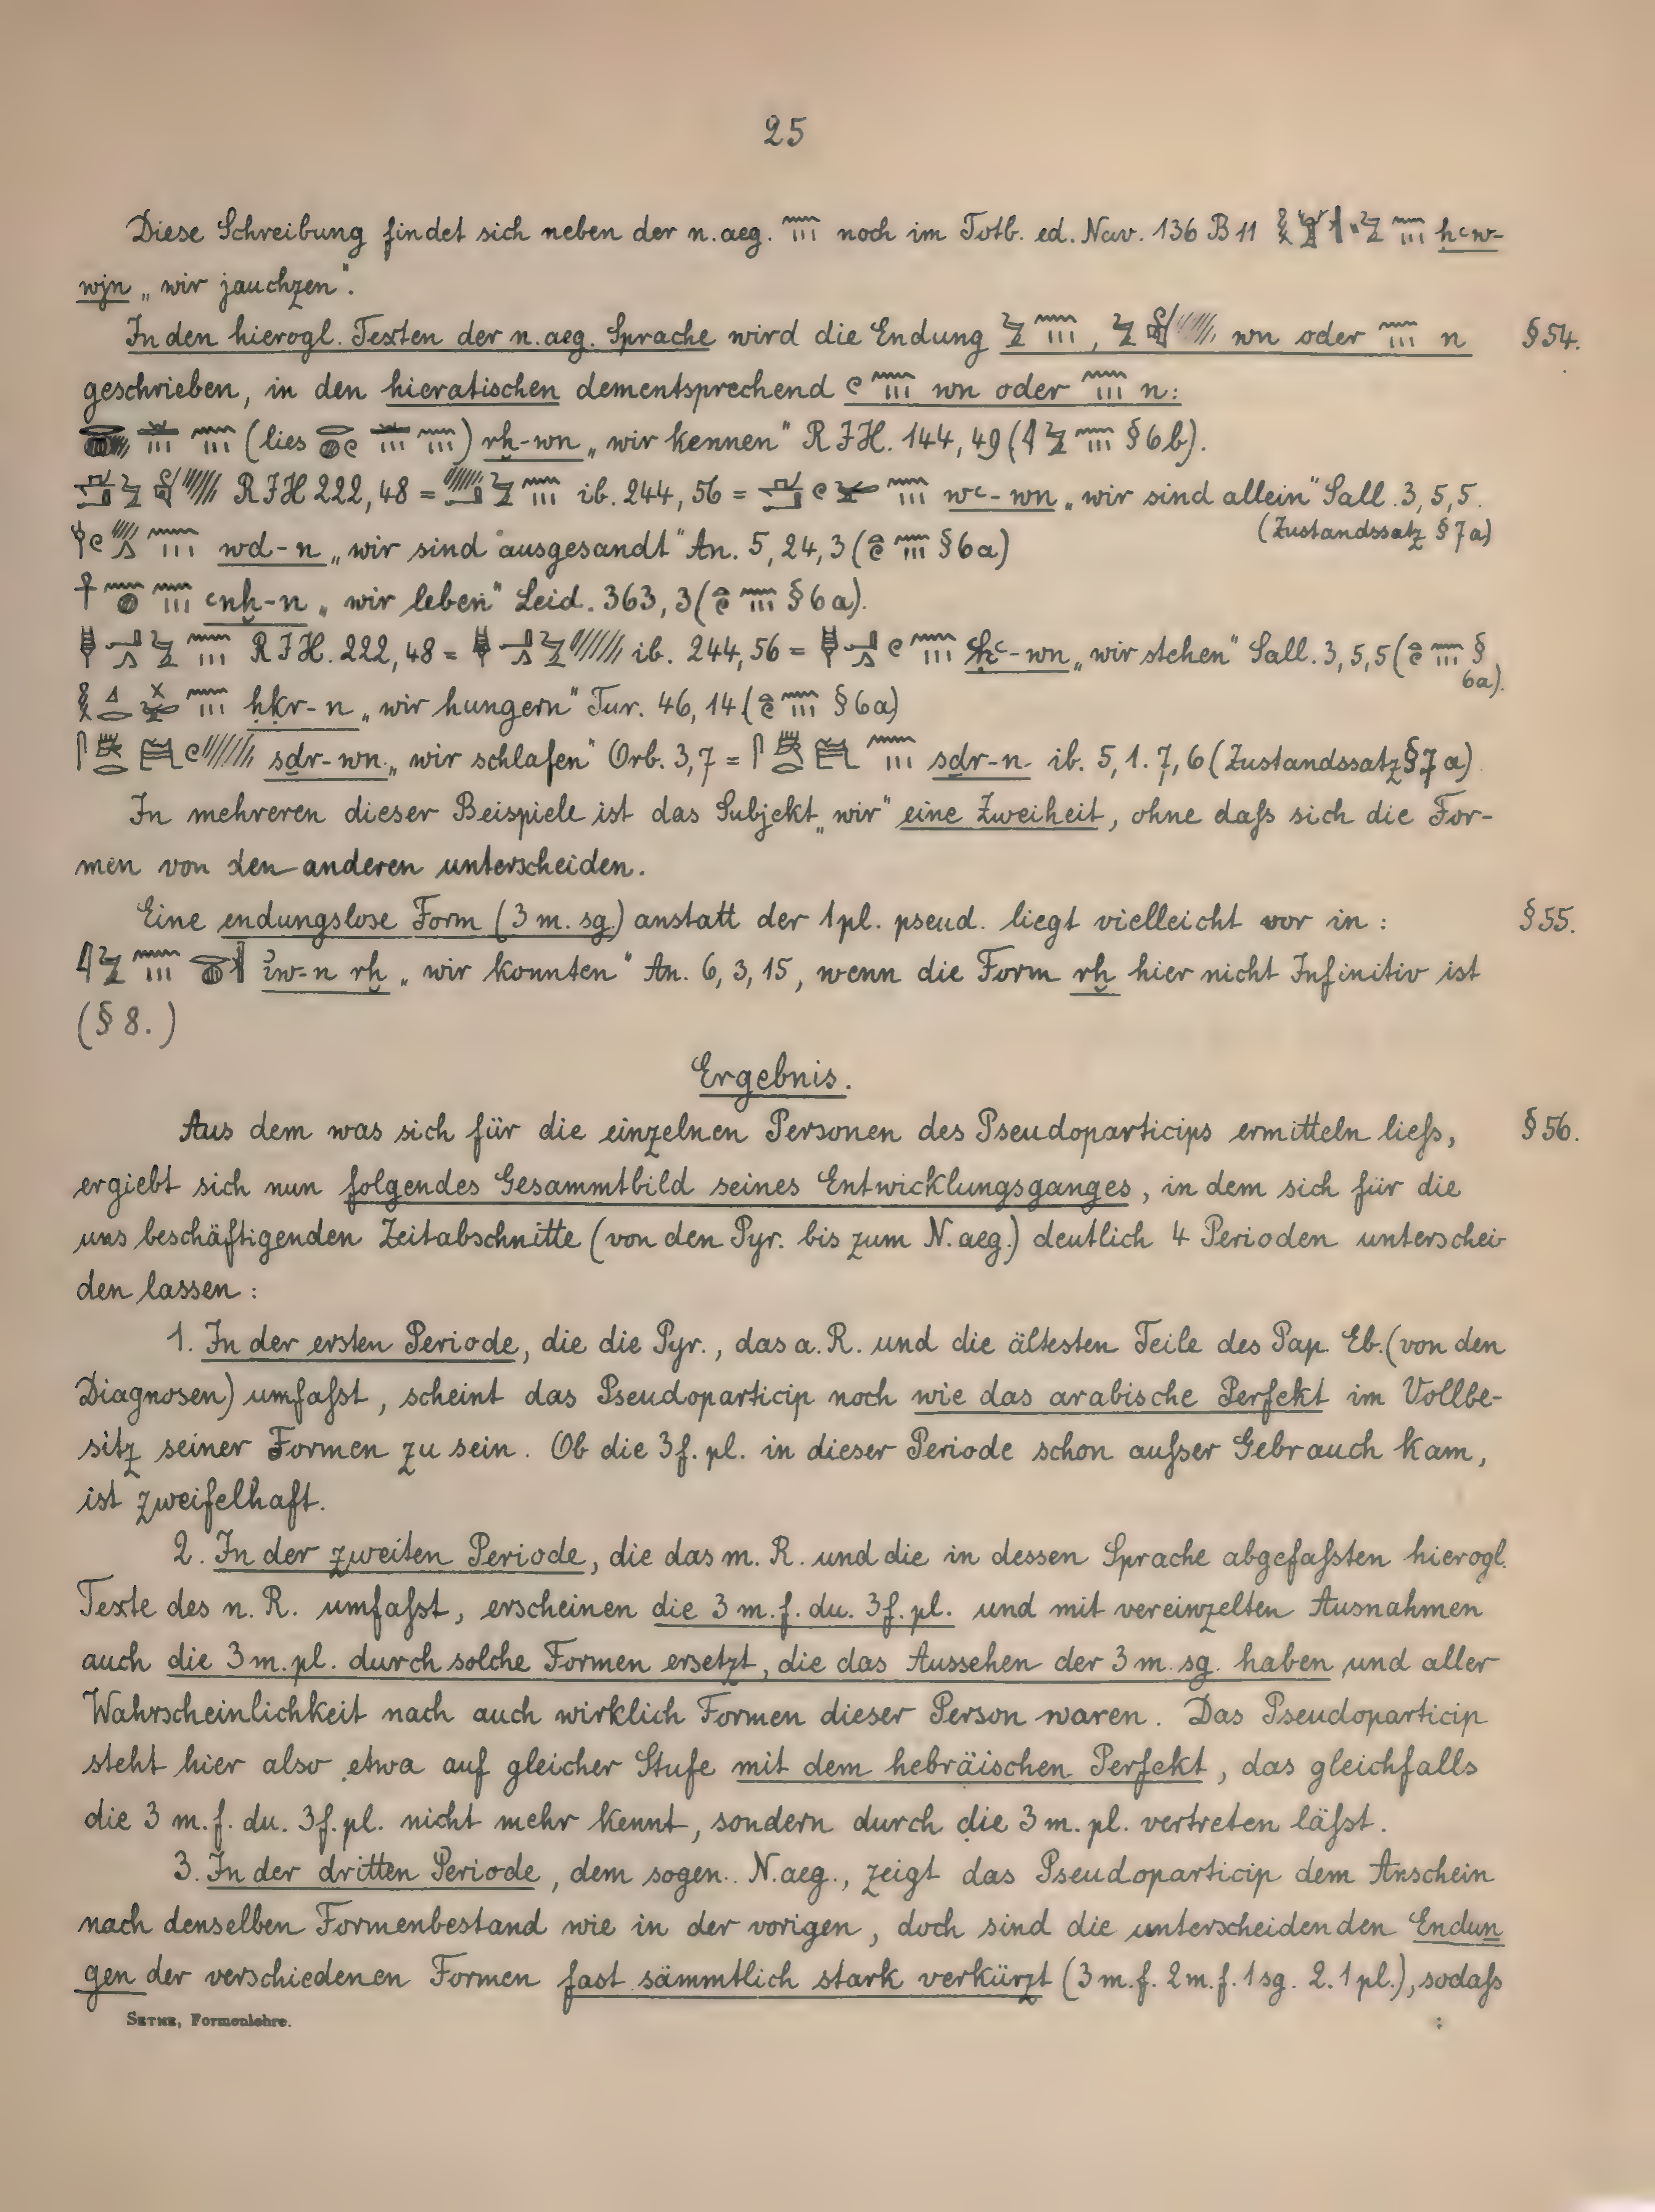 25
Diese Schreibung findet sich neben der n.aeg. noch im Totb. ed. Nav. 136 B 11 ḥꜥw-
wjn „wir jauchzen".
In den hierogl. Texten der n.aeg. Sprache wird die Endung , wn oder n § 54.
geschrieben, in den hieratischen dementsprechend wn oder n:
(lies ) rḫ-wn „wir kennen" R J H. 144, 49 ( § 6 b).
R J H 222, 48 = ib. 244, 56 = wꜥ-wn „wir sind allein" Sall. 3, 5, 5.
(Zustandssatz § 7 a)
wd-n „wir sind ausgesandt" An. 5, 24, 3 ( § 6 a)
ꜥnḫ-n „wir leben" Leid. 363, 3 ( § 6 a).
R J H. 222, 48 = ib. 244, 56 = ꜥḥꜥ-wn „wir stehen" Sall. 3, 5, 5 ( §
6a).
ḥkr-n „wir hungern" Tur. 46, 14 ( § 6 a)
sdr-wn „wir schlafen" Orb. 3, 7 = sdr-n ib. 5, 1. 7, 6 (Zustandssatz § 7 a)
In mehreren dieser Beispiele ist das Subjekt „wir" eine Zweiheit, ohne daſs sich die For-
men von den anderen unterscheiden.
Eine endungslose Form (3 m. sg.) anstatt der 1 pl. pseud. liegt vielleicht vor in : § 55.
ꞽw-n rḫ „wir konnten" An. 6, 3, 15, wenn die Form rḫ hier nicht Infinitiv ist
(§ 8.)
Ergebnis.
Aus dem was sich für die einzelnen Personen des Pseudoparticips ermitteln lieſs, § 56.
ergiebt sich nun folgendes Gesammtbild seines Entwicklungsganges, in dem sich für die
uns beschäftigenden Zeitabschnitte (von den Pyr. bis zum N. aeg.) deutlich 4 Perioden unterschei-
den lassen :
1. In der ersten Periode, die die Pyr., das a. R. und die ältesten Teile des Pap. Eb. (von den
Diagnosen) umfaſst, scheint das Pseudoparticip noch wie das arabische Perfekt im Vollbe-
sitz seiner Formen zu sein. Ob die 3 f. pl. in dieser Periode schon auſser Gebrauch kam,
ist zweifelhaft.
2. In der zweiten Periode, die das m. R. und die in dessen Sprache abgefaſsten hierogl.
Texte des n. R. umfaſst, erscheinen die 3 m. f. du. 3 f. pl. und mit vereinzelten Ausnahmen
auch die 3 m. pl. durch solche Formen ersetzt, die das Aussehen der 3 m. sg. haben und aller
Wahrscheinlichkeit nach auch wirklich Formen dieser Person waren. Das Pseudoparticip
steht hier also etwa auf gleicher Stufe mit dem hebräischen Perfekt, das gleichfalls
die 3 m. f. du. 3 f. pl. nicht mehr kennt, sondern durch die 3 m. pl. vertreten läſst.
3. In der dritten Periode, dem sogen. N. aeg., zeigt das Pseudoparticip dem Anschein
nach denselben Formenbestand wie in der vorigen, doch sind die unterscheidenden Endun
gen der verschiedenen Formen fast sämmtlich stark verkürzt (3 m. f. 2 m. f. 1 sg. 2. 1 pl.), sodaſs
SETHE, Formenlehre.